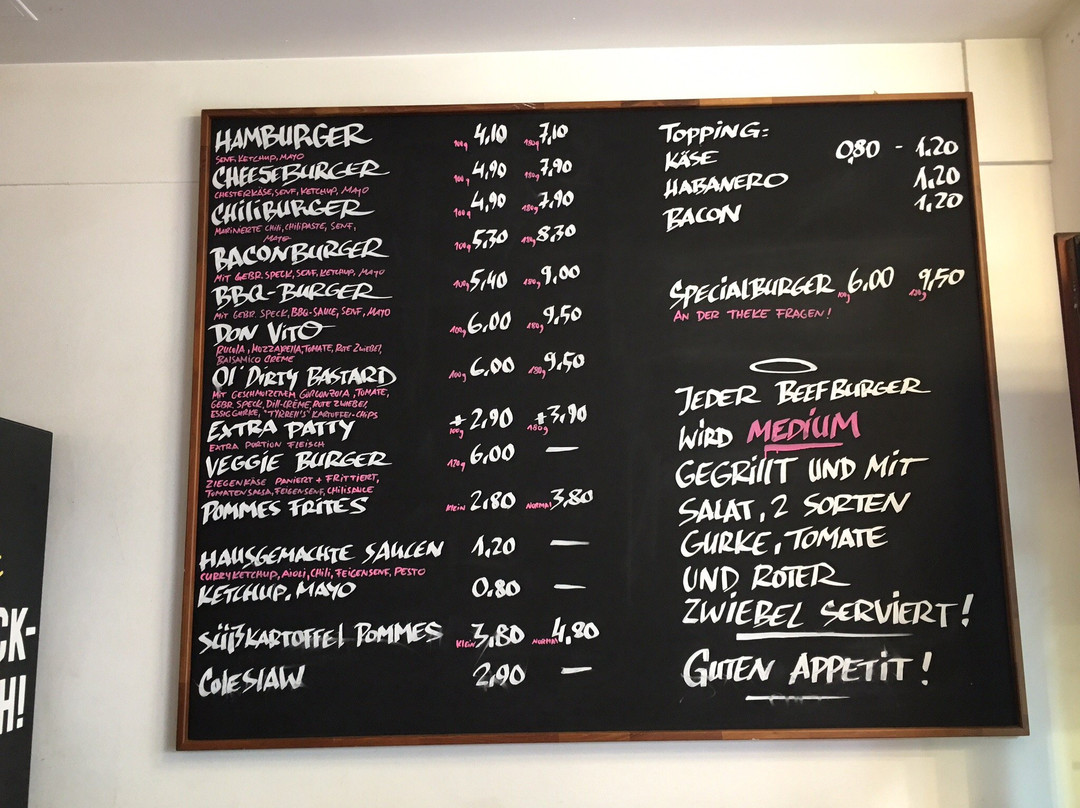 HAMBURGER 100g 4,10 180g 7,10
SENF, KETCHUP, MAYO
CHEESEBURGER 100g 4,90 180g 7,90
CHESTERKÄSE, SENF, KETCHUP, MAYO
CHILIBURGER 100g 4,90 180g 7,90
MARINIERTE CHILI, CHILIPASTE, SENF,
MAYO
BACONBURGER 100g 5,30 180g 8,30
MIT GEBR. SPECK, SENF, KETCHUP, MAYO
BBQ-BURGER 100g 5,40 180g 9,00
MIT GEBR. SPECK, BBQ-SAUCE, SENF, MAYO
DON VITO 100g 6,00 180g 9,50
RUCOLA, MOZZARELLA, TOMATE, ROTE ZWIEBEL,
BALSAMICO CRÈME
OL' DIRTY BASTARD 100g 6,00 180g 9,50
MIT GESCHMOLZENEM GORGONZOLA, TOMATE,
GEBR. SPECK, DILL-CRÈME, ROTE ZWIEBEL,
ESSIGGURKE, "TYRRELL'S" KARTOFFEL-CHIPS
EXTRA PATTY + 100g 2,90 + 180g 3,90
EXTRA PORTION FLEISCH
VEGGIE BURGER 120g 6,00 —
ZIEGENKÄSE PANIERT + FRITTIERT,
TOMATENSALSA, FEIGENSENF, CHILISAUCE
POMMES FRITES KLEIN 2,80 NORMAL 3,80
HAUSGEMACHTE SAUCEN 1,20 —
CURRYKETCHUP, AIOLI, CHILI, FEIGENSENF, PESTO
KETCHUP, MAYO 0,80 —
SÜßKARTOFFEL POMMES KLEIN 3,80 NORMAL 4,80
COLESLAW 2,90 —
TOPPING:
KÄSE 0,80 - 1,20
HABANERO 1,20
BACON 1,20
SPECIALBURGER 100g 6,00 180g 9,50
AN DER THEKE FRAGEN!
JEDER BEEFBURGER
WIRD MEDIUM
GEGRILLT UND MIT
SALAT, 2 SORTEN
GURKE, TOMATE
UND ROTER
ZWIEBEL SERVIERT!
GUTEN APPETIT!
CK-
H!